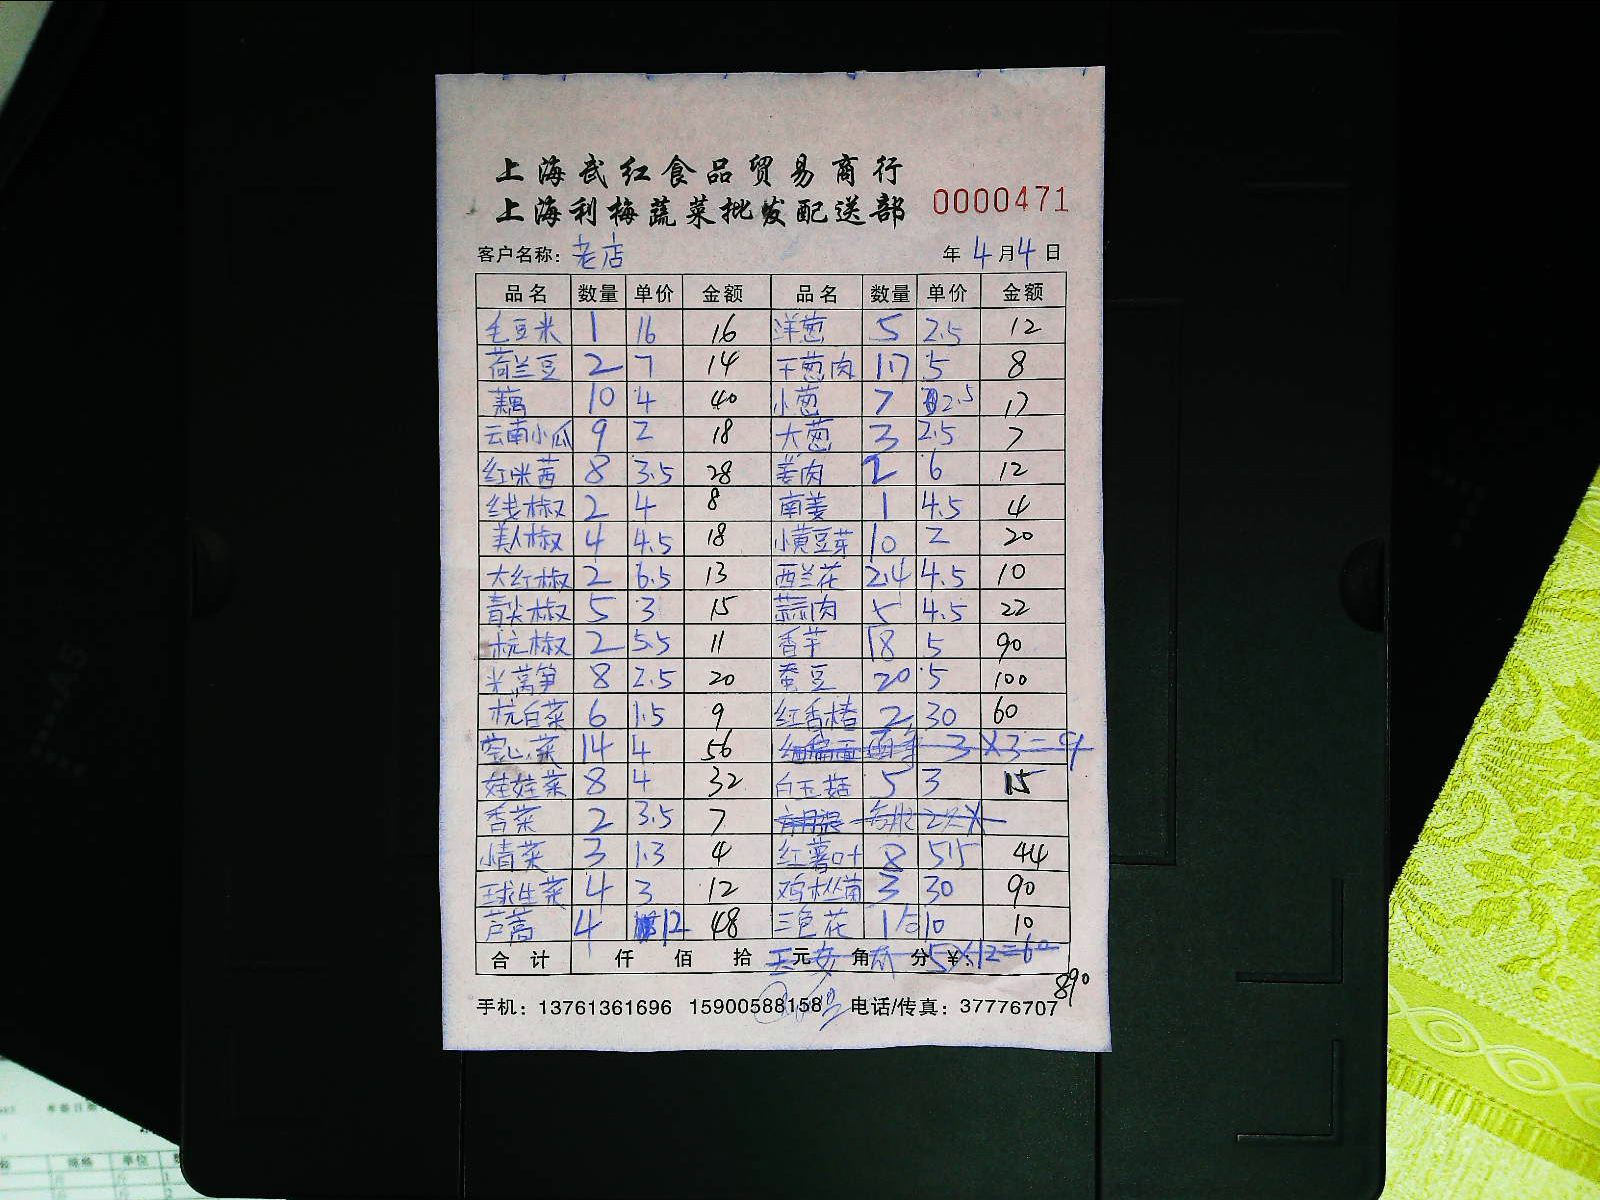 上海武红食品贸易商行
上海利梅蔬菜批发配送部 0000471
客户名称：老店 年 4 月 4 日
品名 数量 单价 金额 品名 数量 单价 金额
毛豆米 1 16 16 洋葱 5 2.5 12
荷兰豆 2 7 14 干葱肉 1.7 5 8
藕 10 4 40 小葱 7 2.5 17
云南小瓜 9 2 18 大葱 3 2.5 7
红米茜 8 3.5 28 姜肉 2 6 12
线椒 2 4 8 南姜 1 4.5 4
美人椒 4 4.5 18 小黄豆芽 10 2 20
大红椒 2 6.5 13 西兰花 2.4 4.5 10
青尖椒 5 3 15 蒜肉 5 4.5 22
杭椒 2 5.5 11 香芋 18 5 90
光莴笋 8 2.5 20 蚕豆 20 5 100
杭白菜 6 1.5 9 红香椿 2 30 60
空心菜 14 4 56 3×3=9
娃娃菜 8 4 32 白玉菇 5 3 15
香菜 2 3.5 7
小青菜 3 1.3 4 红薯叶 8 5.5 44
球生菜 4 3 12 鸡枞菌 3 30 90
芦蒿 4 12 48 三色花 1合 10 10
合计 仟 佰 拾 元 角 分 ¥： 5×12=60
890
手机：13761361696 15900588158 电话/传真：37776707